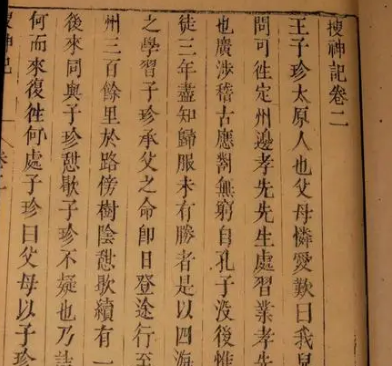 搜神記卷二
王子珍太原人也父母憐愛歎曰我兒
問可徃定州邊孝先先生處習業孝先
也廣涉稽古應對無窮自孔子没後惟
徒三年盡知歸服未有勝者是以四海
之學習子珍承父之命卽日登途行至
州三百餘里於路傍樹陰憇歇續有一
後來同與子珍憇歇子珍不疑也乃詰
何而來復徃何處子珍曰父母以子珍
搜神記